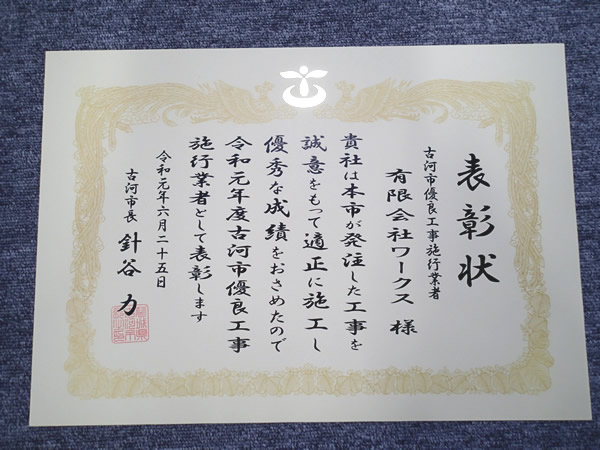 表彰状
古河市優良工事施行業者
有限会社ワークス 様
貴社は本市が発注した工事を
誠意をもって適正に施工し
優秀な成績をおさめたので
令和元年度古河市優良工事
施行業者として表彰します
令和元年六月二十五日
古河市長 針谷 力